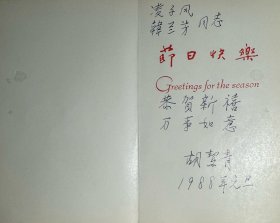 凌子风
韩兰芳 同志
節日快樂
Greetings for the season
恭贺新禧
万事如意
胡絜青
1988年元旦